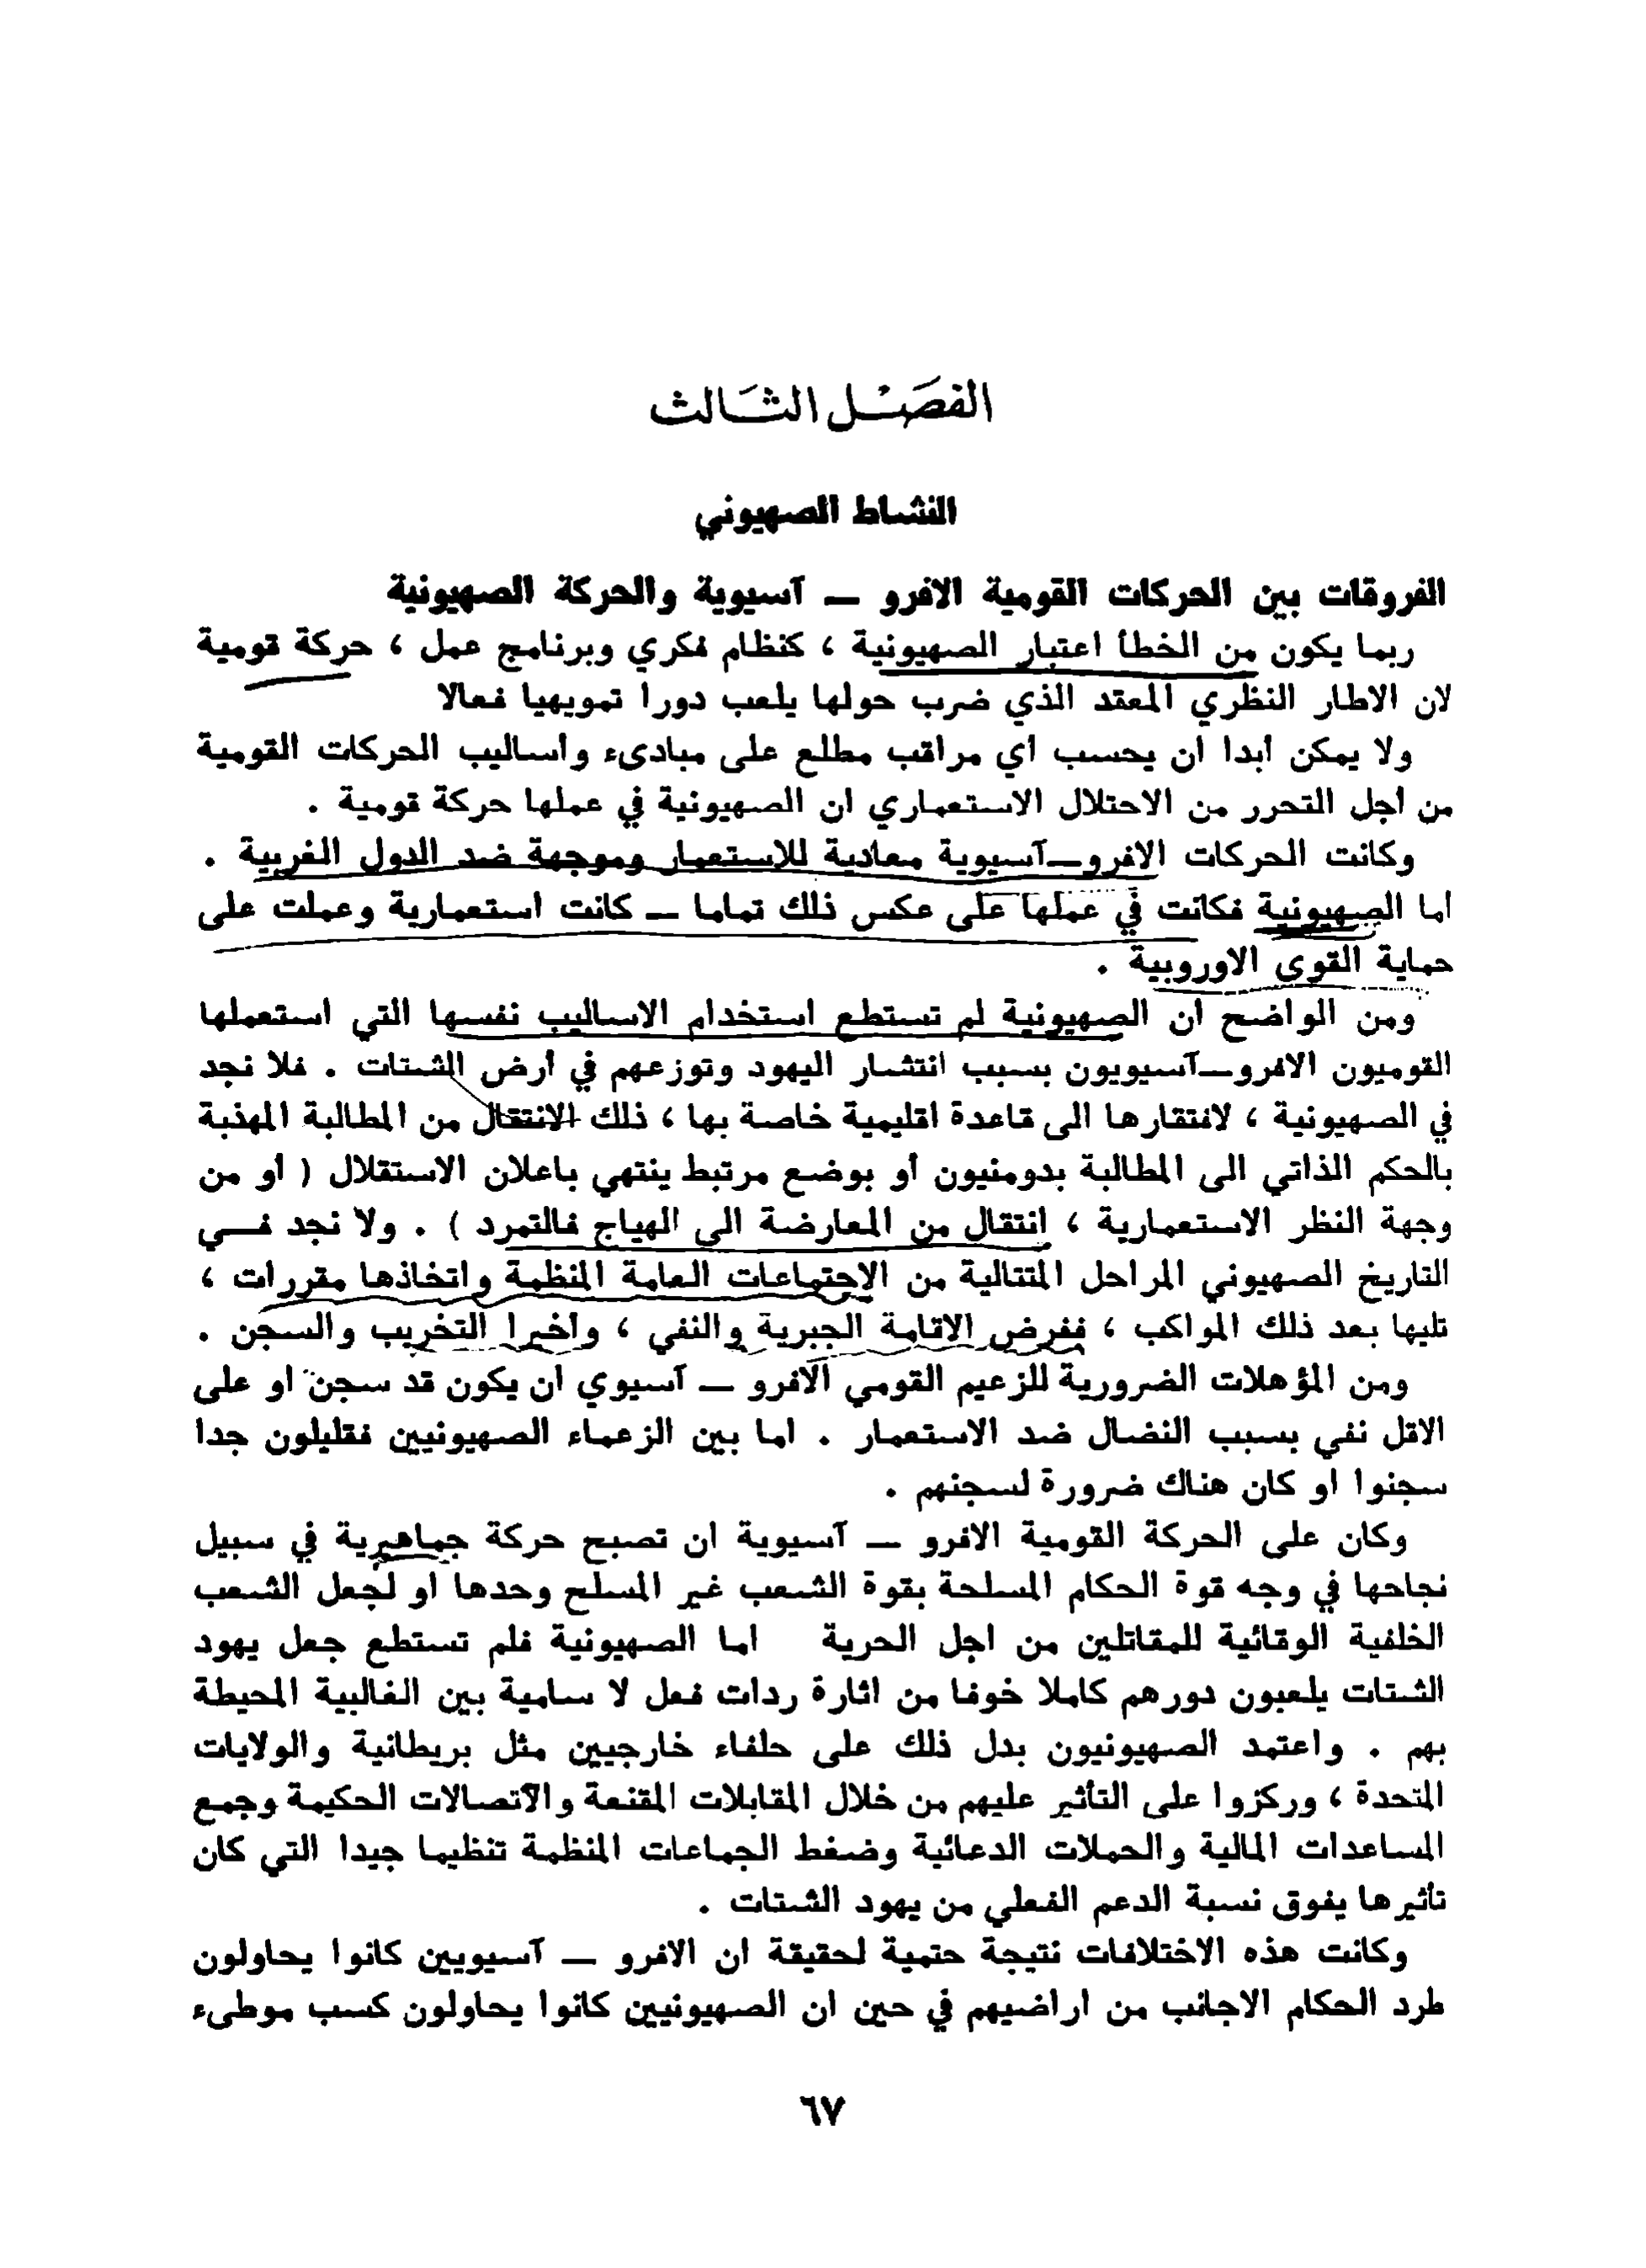 الفصَـْـل الثـَـالث
النشاط الصهيوني
الفروقات بين الحركات القومية الافرو — آسيوية والحركة الصهيونية
ربما يكون من الخطأ اعتبار الصهيونية ، كنظام فكري وبرنامج عمل ، حركة قومية
لان الاطار النظري المعقد الذي ضرب حولها يلعب دورا تمويهيا فعالا
ولا يمكن أبدا أن يحسب أي مراقب مطلع على مبادىء وأساليب الحركات القومية
من أجل التحرر من الاحتلال الاستعماري ان الصهيونية في عملها حركة قومية .
وكانت الحركات الافرو—آسيوية معادية للاستعمار وموجهة ضد الدول الغربية .
أما الصهيونية فكانت في عملها على عكس ذلك تماما — كانت استعمارية وعملت على
حماية القوى الاوروبية .
ومن الواضح ان الصهيونية لم تستطع استخدام الاساليب نفسها التي استعملها
القوميون الافرو—آسيويون بسبب انتشار اليهود وتوزعهم في أرض الشتات . فلا نجد
في الصهيونية ، لافتقارها الى قاعدة اقليمية خاصة بها ، ذلك الانتقال من المطالبة المهذبة
بالحكم الذاتي الى المطالبة بدومنيون أو بوضع مرتبط ينتهي باعلان الاستقلال ( أو من
وجهة النظر الاستعمارية ، انتقال من المعارضة الى الهياج فالتمرد ) . ولا نجد فـــي
التاريخ الصهيوني المراحل المتتالية من الاجتماعات العامة المنظمة واتخاذها مقررات ،
تليها بعد ذلك المواكب ، ففرض الاقامة الجبرية والنفي ، وأخيرا التخريب والسجن .
ومن المؤهلات الضرورية للزعيم القومي الافرو — آسيوي ان يكون قد سجن او على
الاقل نفي بسبب النضال ضد الاستعمار . اما بين الزعماء الصهيونيين فقليلون جدا
سجنوا او كان هناك ضرورة لسجنهم .
وكان على الحركة القومية الافرو — آسيوية ان تصبح حركة جماهيرية في سبيل
نجاحها في وجه قوة الحكام المسلحة بقوة الشعب غير المسلح وحدها او لجعل الشعب
الخلفية الوقائية للمقاتلين من اجل الحرية اما الصهيونية فلم تستطع جعل يهود
الشتات يلعبون دورهم كاملا خوفا من اثارة ردات فعل لا سامية بين الغالبية المحيطة
بهم . واعتمد الصهيونيون بدل ذلك على حلفاء خارجيين مثل بريطانية والولايات
المتحدة ، وركزوا على التأثير عليهم من خلال المقابلات المقنعة والاتصالات الحكيمة وجمع
المساعدات المالية والحملات الدعائية وضغط الجماعات المنظمة تنظيما جيدا التي كان
تأثيرها يفوق نسبة الدعم الفعلي من يهود الشتات .
وكانت هذه الاختلافات نتيجة حتمية لحقيقة ان الافرو — آسيويين كانوا يحاولون
طرد الحكام الاجانب من اراضيهم في حين ان الصهيونيين كانوا يحاولون كسب موطىء
٦٧